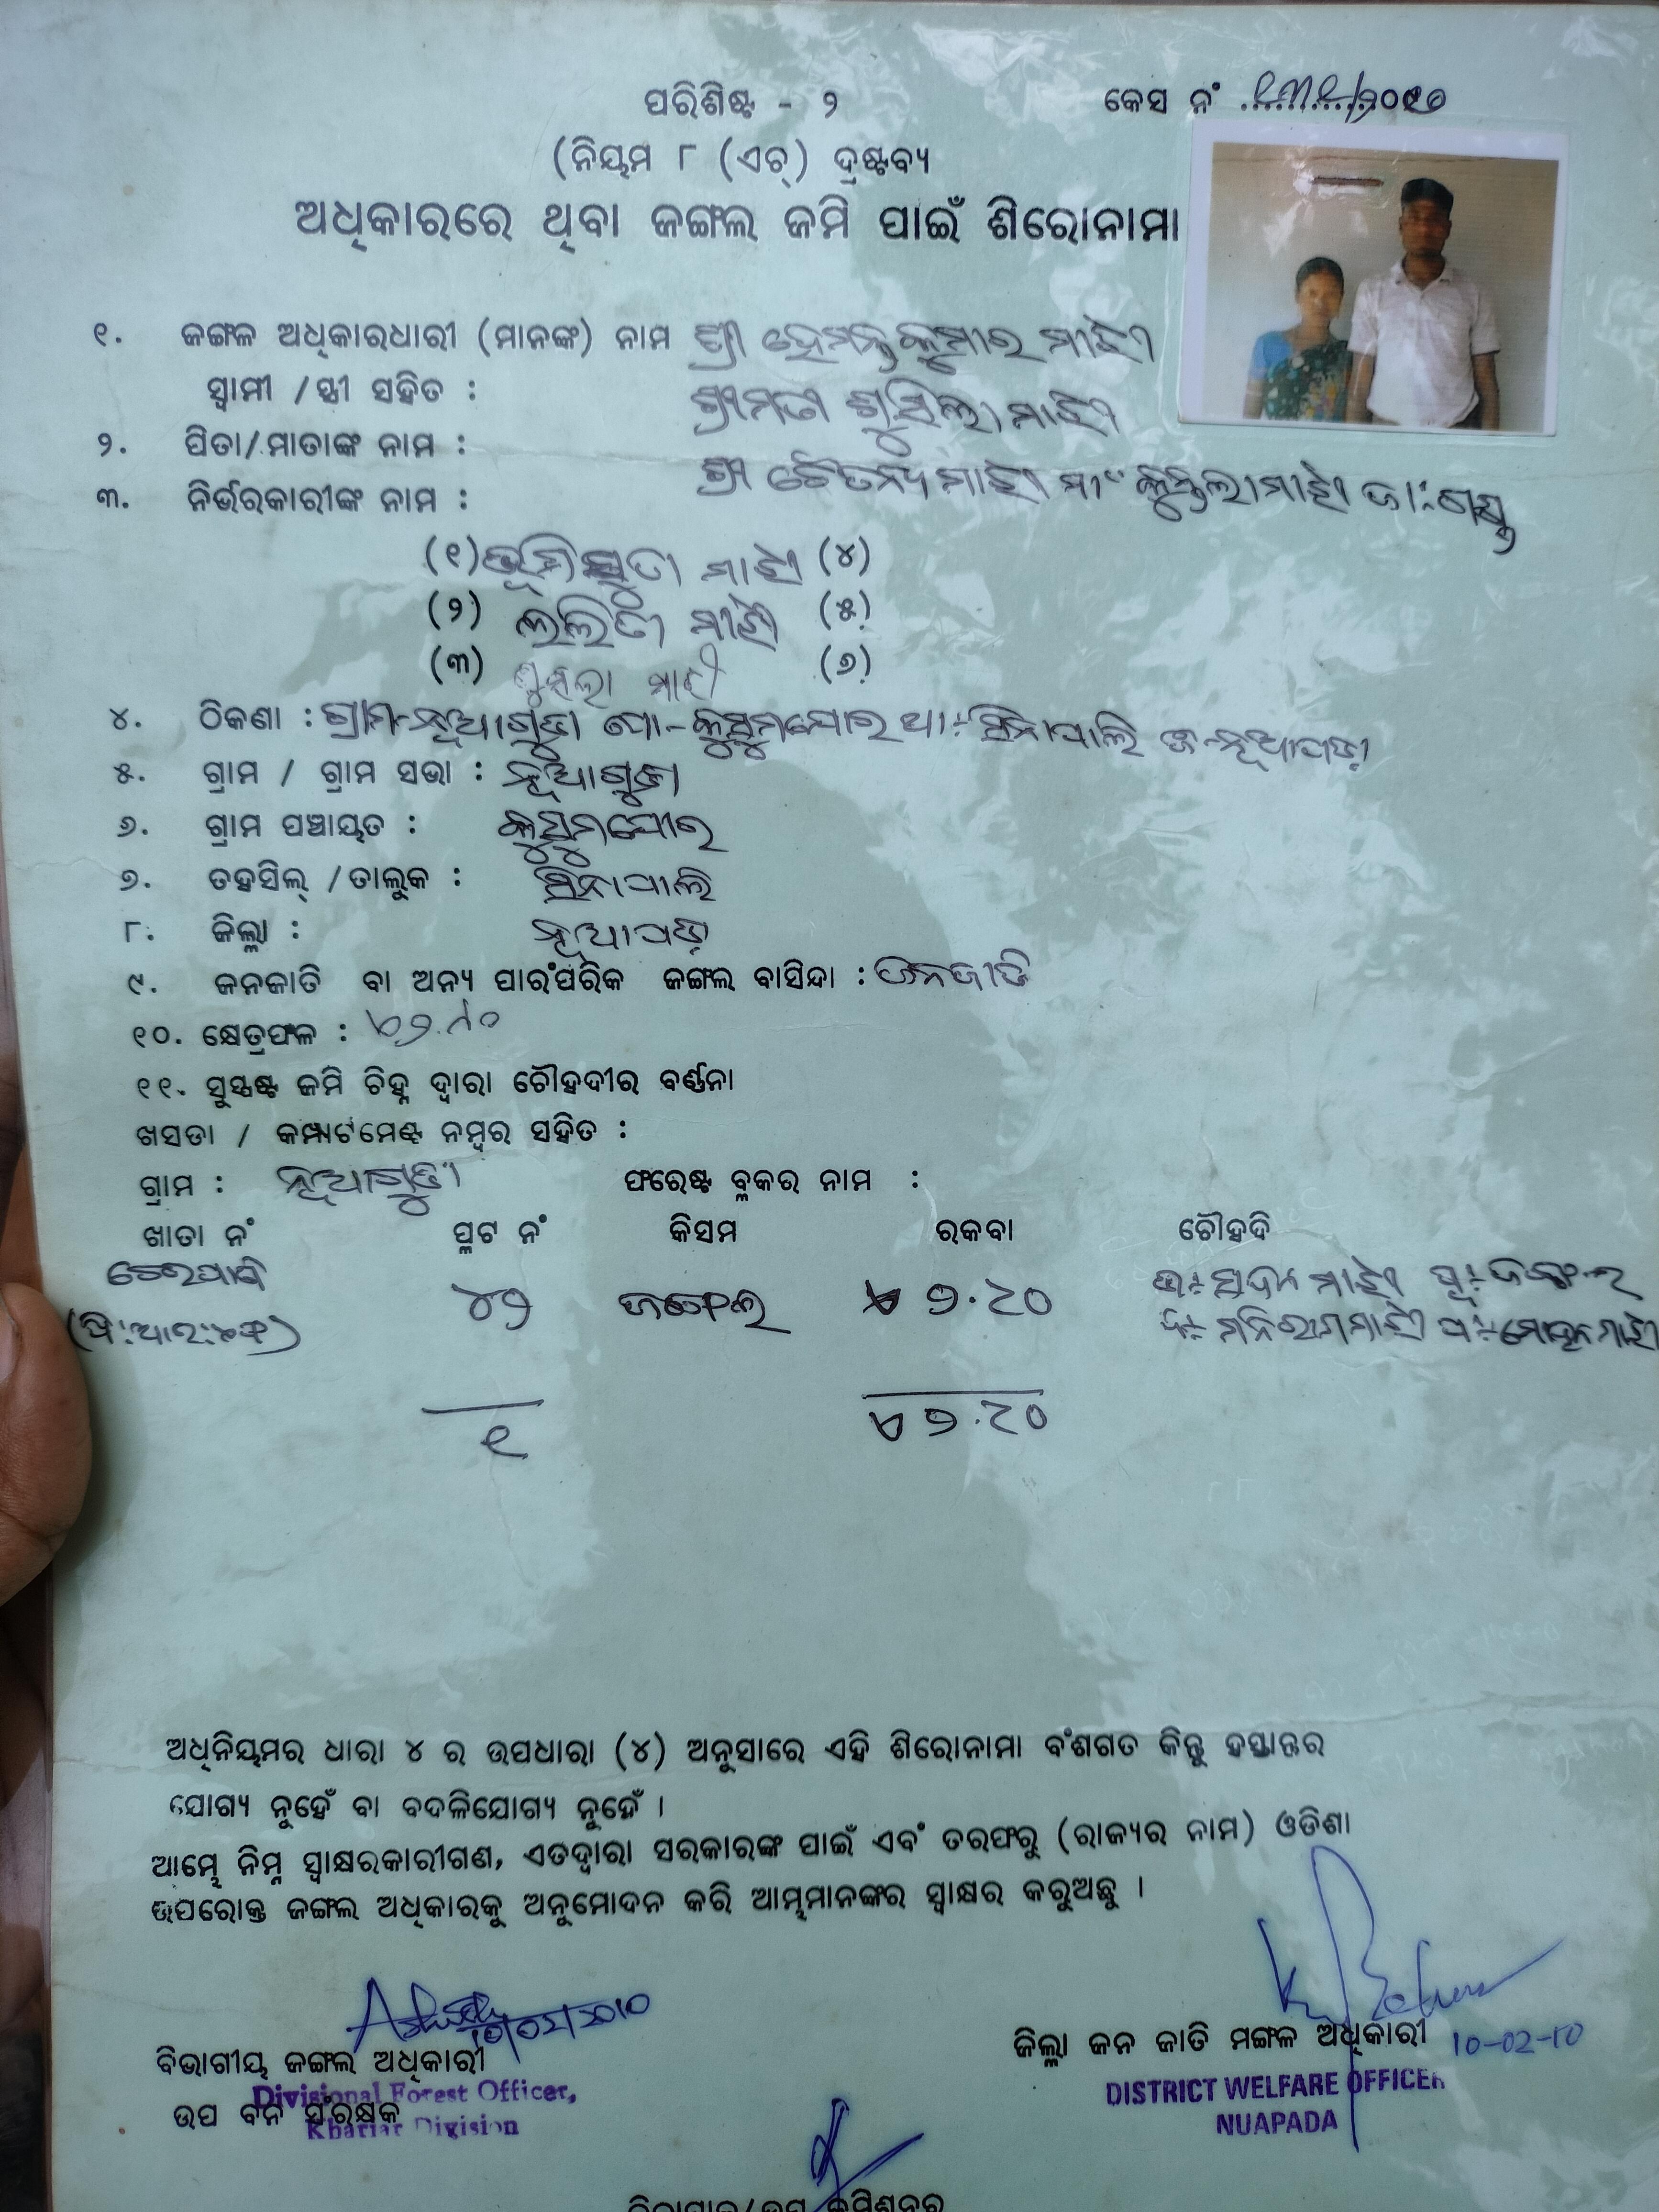 ପରିଶିଷ୍ଟ - ୨
କେସ ନଂ ୧୩୧/୨୦୧୦
(ନିୟମ ୮ (ଏଚ୍) ଦ୍ରଷ୍ଟବ୍ୟ
ଅଧିକାରରେ ଥିବା ଜଙ୍ଗଲ ଜମି ପାଇଁ ଶିରୋନାମା
୧. ଜଙ୍ଗଳ ଅଧିକାରଧାରୀ (ମାନଙ୍କ) ନାମ ଶ୍ରୀ ହେମନ୍ତ କୁମାର ମାଝୀ
ସ୍ଵାମୀ / ସ୍ତ୍ରୀ ସହିତ : ଶ୍ରୀମତୀ ସୁସିଲା ମାଝୀ
୨. ପିତା/ମାତାଙ୍କ ନାମ : ଶ୍ରୀ ଚୈତନ୍ୟ ମାଝୀ ମାଂ କୁନ୍ତଲା ମାଝୀ ଜା:
୩. ନିର୍ଭରକାରୀଙ୍କ ନାମ :
(୧) ଭୂମିସୁତା ମାଝୀ (୪)
(୨) ଲଲିତା ମାଝୀ (୫)
(୩) ମାଝୀ (୬)
୪. ଠିକଣା : ଗ୍ରାମ-ନୂଆଗୁଡା ପୋ-କୁସୁମଯୋର ଥା:- ସିନାପାଲି ଜି-ନୂଆପଡ଼ା
୫. ଗ୍ରାମ / ଗ୍ରାମ ସଭା : ନୂଆଗୁଡା
୬. ଗ୍ରାମ ପଞ୍ଚାୟତ : କୁସୁମଯୋର
୭. ତହସିଲ୍ /ତାଲୁକ : ସିନାପାଲି
୮. ଜିଲ୍ଲା : ନୂଆପଡ଼ା
୯. ଜନଜାତି ବା ଅନ୍ୟ ପାରଂପରିକ ଜଙ୍ଗଲ ବାସିନ୍ଦା : ଜନଜାତି
୧୦. କ୍ଷେତ୍ରଫଳ :
୧୧. ସୁସ୍ପଷ୍ଟ ଜମି ଚିହ୍ନ ଦ୍ଵାରା ଚୌହଦୀର ବର୍ଣ୍ଣନା
ଖସଡା / କମ୍ପାର୍ଟମେଣ୍ଟ ନମ୍ବର ସହିତ :
ଗ୍ରାମ : ନୂଆଗୁଡା ଫରେଷ୍ଟ ବ୍ଳକର ନାମ :
ଖାତା ନଂ ପ୍ଳଟ ନଂ କିସମ ରକବା ଚୌହଦି
ମାଝୀ
୪୨ ଜଙ୍ଗଲ ୨.୮୦
(ପି:ଆର:ଏଫ) ମନିରାମ ମାଝୀ ମାଝୀ
୧ ୨.୮୦
ଅଧିନିୟମର ଧାରା ୪ ର ଉପଧାରା (୪) ଅନୁସାରେ ଏହି ଶିରୋନାମା ବଂଶଗତ କିନ୍ତୁ ହସ୍ତାନ୍ତର
ଯୋଗ୍ୟ ନୁହେଁ ବା ବଦଳିଯୋଗ୍ୟ ନୁହେଁ ।
ଆମ୍ଭେ ନିମ୍ନ ସ୍ଵାକ୍ଷରକାରୀଗଣ, ଏତଦ୍ଵାରା ସରକାରଙ୍କ ପାଇଁ ଏବଂ ତରଫରୁ (ରାଜ୍ୟର ନାମ) ଓଡିଶା
ଉପରୋକ୍ତ ଜଙ୍ଗଲ ଅଧିକାରକୁ ଅନୁମୋଦନ କରି ଆମ୍ଭମାନଙ୍କର ସ୍ଵାକ୍ଷର କରୁଅଛୁ ।
10/02/2010
ବିଭାଗୀୟ ଜଙ୍ଗଲ ଅଧିକାରୀ
Divisional Forest Officer,
ଉପ ବନ ସଂରକ୍ଷକ
Khariar Division
ଜିଲ୍ଲା ଜନ ଜାତି ମଙ୍ଗଳ ଅଧିକାରୀ 10-02-10
DISTRICT WELFARE OFFICER
NUAPADA